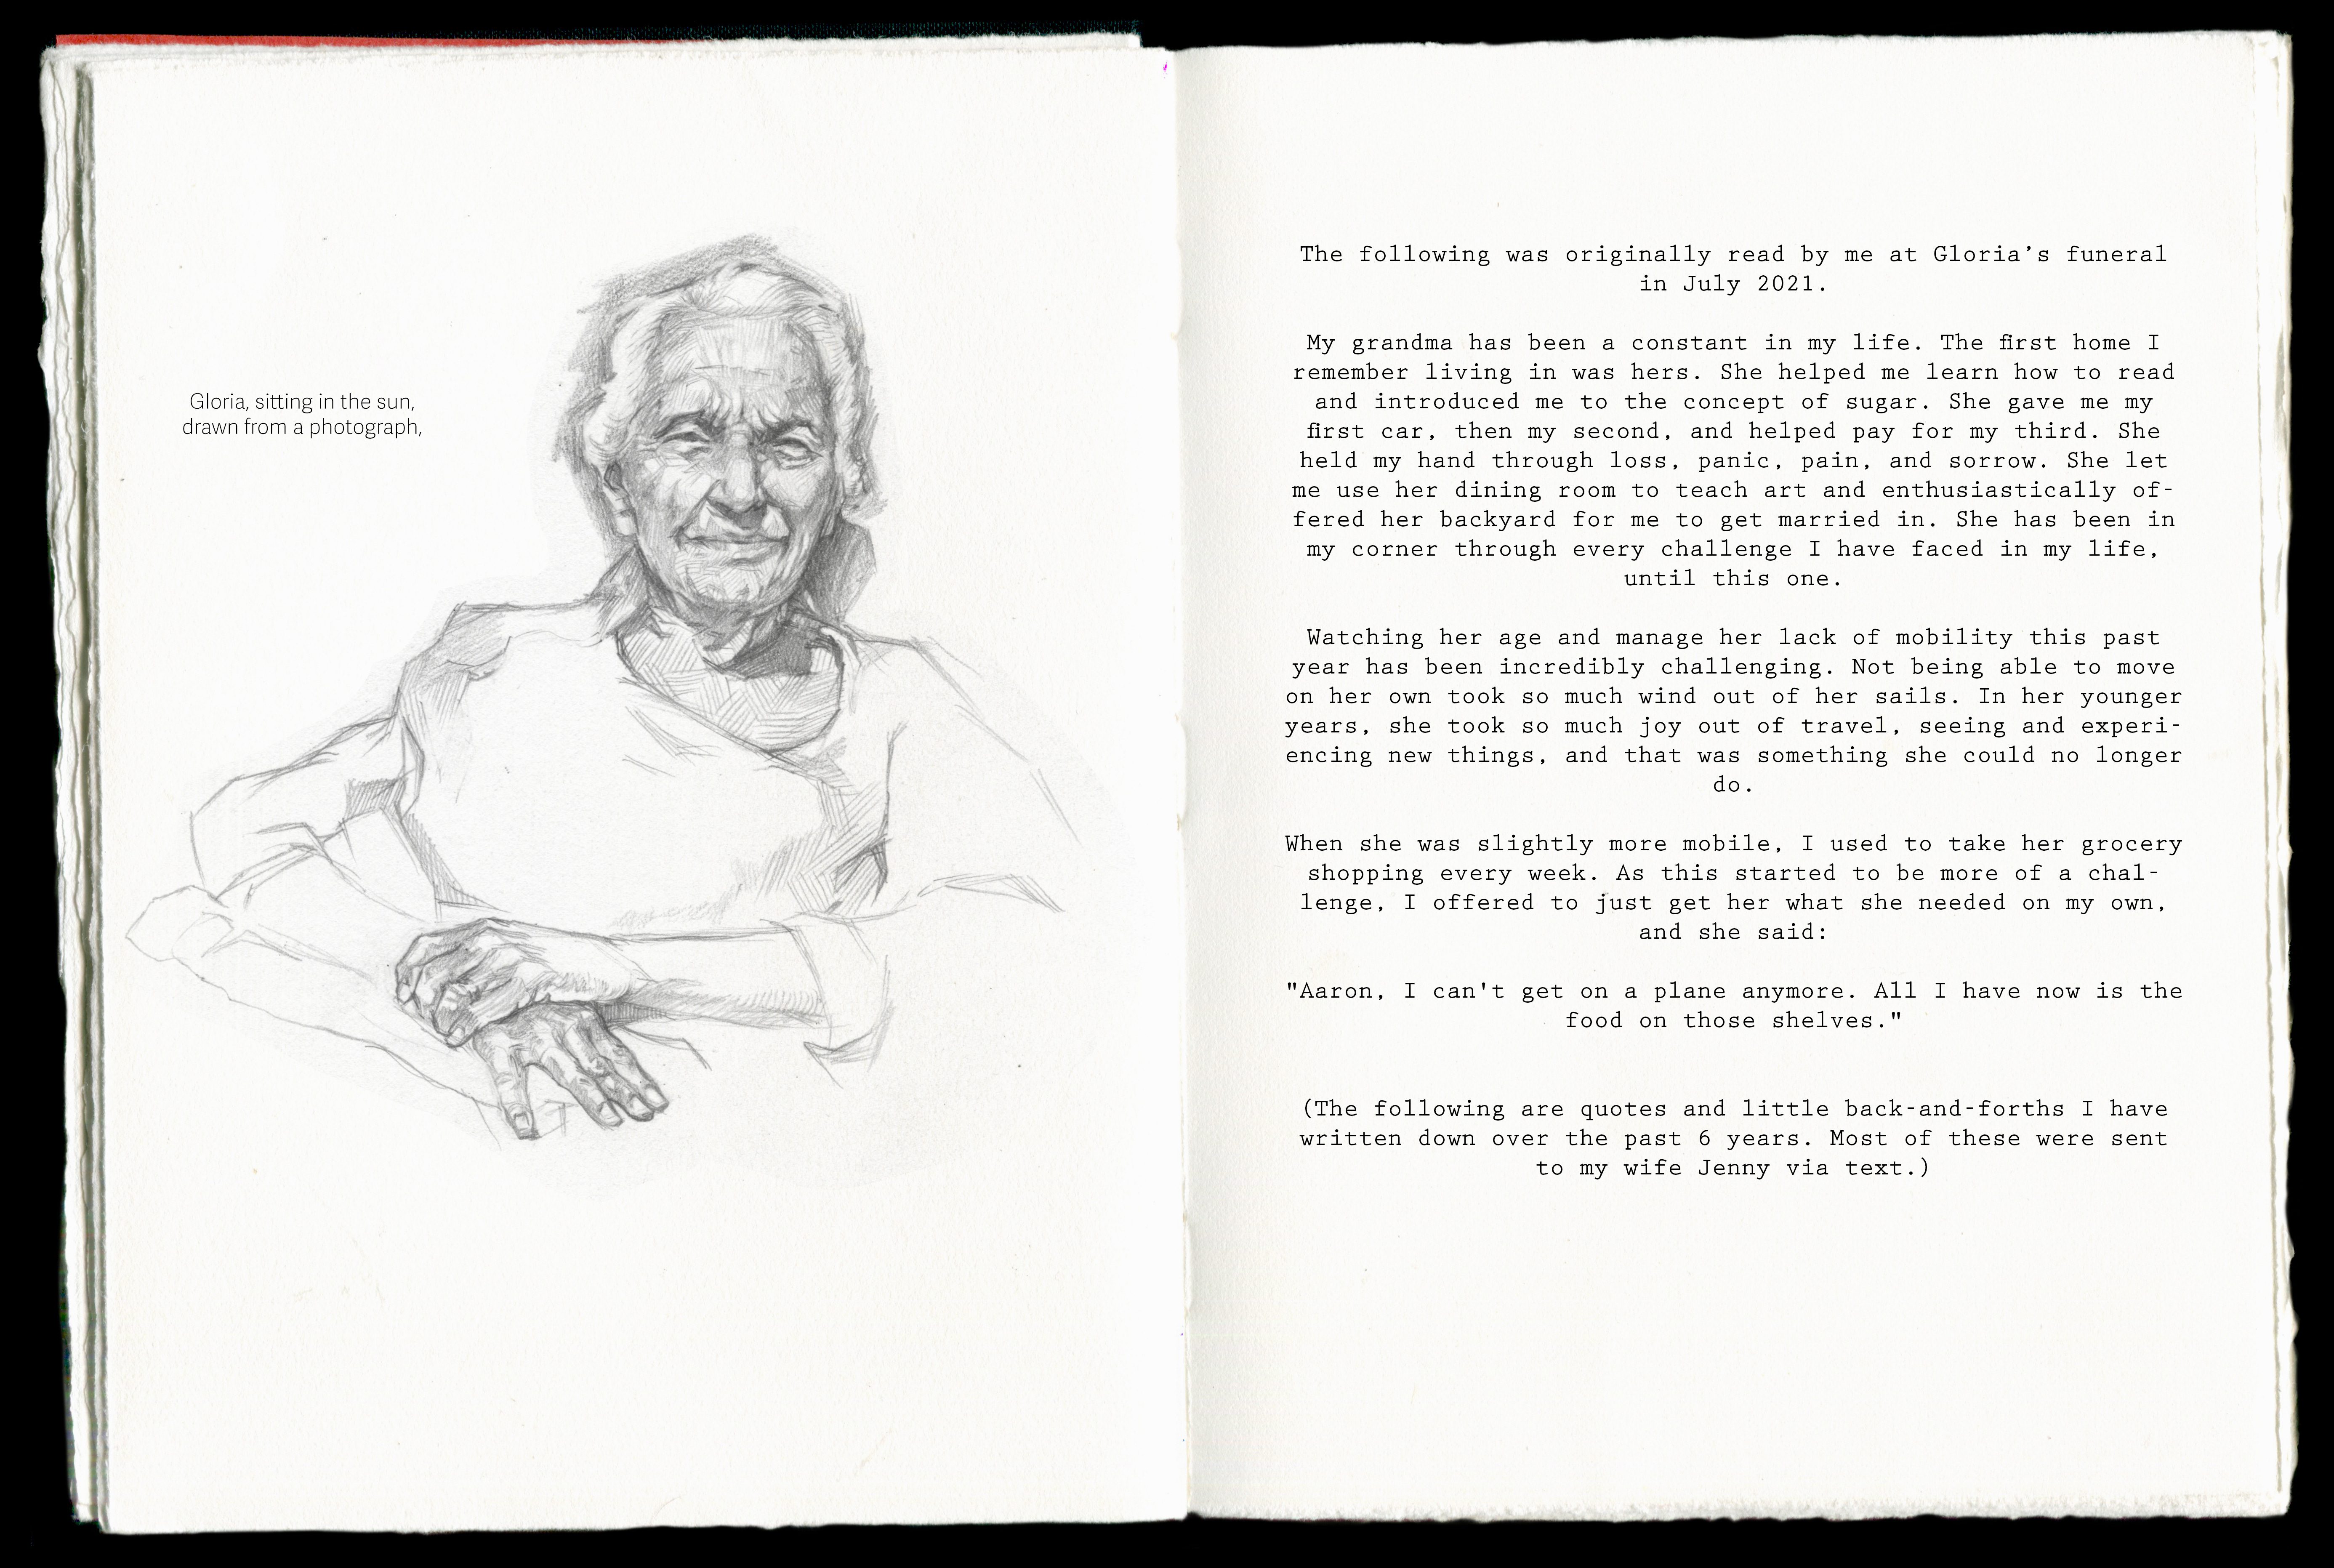 Gloria, sitting in the sun,
drawn from a photograph,
The following was originally read by me at Gloria’s funeral
in July 2021.
My grandma has been a constant in my life. The first home I
remember living in was hers. She helped me learn how to read
and introduced me to the concept of sugar. She gave me my
first car, then my second, and helped pay for my third. She
held my hand through loss, panic, pain, and sorrow. She let
me use her dining room to teach art and enthusiastically of-
fered her backyard for me to get married in. She has been in
my corner through every challenge I have faced in my life,
until this one.
Watching her age and manage her lack of mobility this past
year has been incredibly challenging. Not being able to move
on her own took so much wind out of her sails. In her younger
years, she took so much joy out of travel, seeing and experi-
encing new things, and that was something she could no longer
do.
When she was slightly more mobile, I used to take her grocery
shopping every week. As this started to be more of a chal-
lenge, I offered to just get her what she needed on my own,
and she said:
"Aaron, I can't get on a plane anymore. All I have now is the
food on those shelves."
(The following are quotes and little back-and-forths I have
written down over the past 6 years. Most of these were sent
to my wife Jenny via text.)